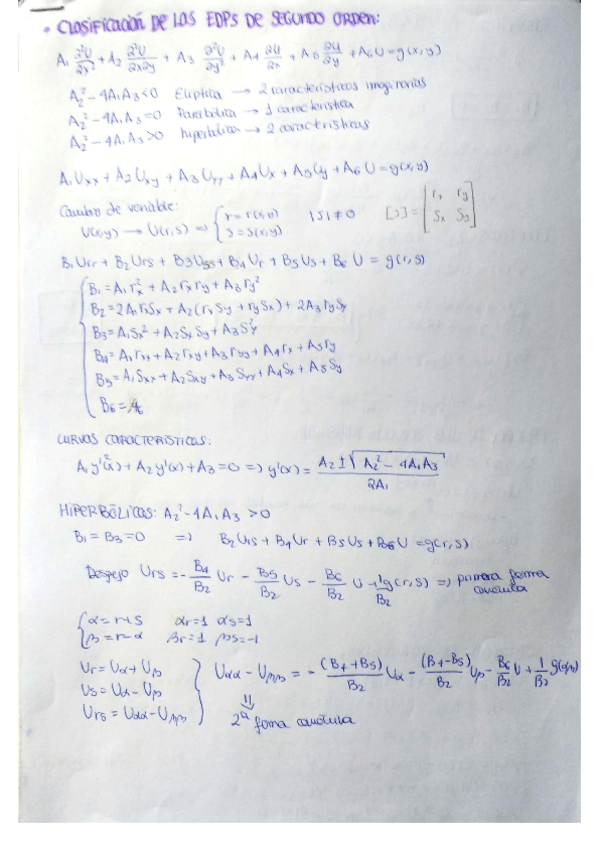 • CLASIFICACIÓN DE LAS EDPS DE SEGUNDO ORDEN:
A₁ ∂²U/∂x² + A₂ ∂²U/∂x∂y + A₃ ∂²U/∂y² + A₄ ∂U/∂x + A₅ ∂U/∂y + A₆U = g(x,y)
A₂² - 4A₁A₃ < 0 Elíptica → 2 características imaginarias
A₂² - 4A₁A₃ = 0 Parabólica → 1 característica
A₂² - 4A₁A₃ > 0 hiperbólica → 2 características
A₁Uxx + A₂Uxy + A₃Uyy + A₄Ux + A₅Uy + A₆U = g(x,y)
Cambio de variable:
U(x,y) → U(r,s) ⇒ { r = r(x,y) s = s(x,y) |J| ≠ 0 [J] = [rx ry Sx Sy]
B₁Urr + B₂Urs + B₃Uss + B₄Ur + B₅Us + B₆U = g(r,s)
B₁ = A₁rx² + A₂rxry + A₃ry²
B₂ = 2A₁rxSx + A₂(rxSy + rySx) + 2A₃rySy
B₃ = A₁Sx² + A₂SxSy + A₃Sy²
B₄ = A₁rxx + A₂rxy + A₃ryy + A₄rx + A₅ry
B₅ = A₁Sxx + A₂Sxy + A₃Syy + A₄Sx + A₅Sy
B₆ = A₆
CURVAS CARACTERÍSTICAS:
A₁y'²(x) + A₂y'(x) + A₃ = 0 ⇒ y'(x) = (A₂ ± √(A₂² - 4A₁A₃)) / 2A₁
HIPERBÓLICAS: A₂² - 4A₁A₃ > 0
B₁ = B₃ = 0 ⇒ B₂Urs + B₄Ur + B₅Us + B₆U = g(r,s)
Despejo Urs = - B₄/B₂ Ur - B₅/B₂ Us - B₆/B₂ U + 1/B₂ g(r,s) ⇒ primera forma canónica
{ α = r+s αr = 1 αs = 1
β = r-α βr = 1 βs = -1
Ur = Uα + Uβ
Us = Uα - Uβ
Urs = Uαα - Uββ
} Uαα - Uββ = - (B₄+B₅)/B₂ Uα - (B₄-B₅)/B₂ Uβ - B₆/B₂ U + 1/B₂ g(α,β)
⇓
2ª forma canónica